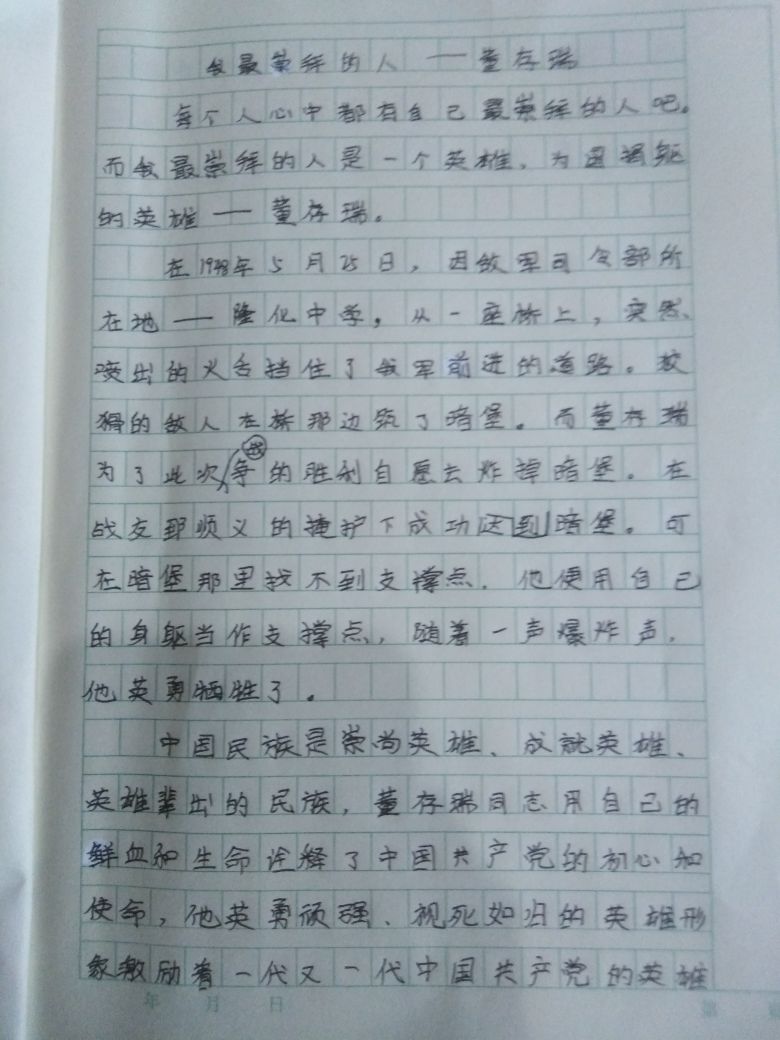 我最崇拜的人——董存瑞
每个人心中都有自己最崇拜的人吧。
而我最崇拜的人是一个英雄,为国捐躯
的英雄——董存瑞。
在1948年5月25日,因敌军司令部所
在地——隆化中学,从一座桥上,突然、
喷出的火舌挡住了我军前进的道路。狡
猾的敌人在桥那边筑了暗堡。而董存瑞
为了此次战争的胜利自愿去炸掉暗堡。在
战友郅顺义的掩护下成功达到暗堡。可
在暗堡那里找不到支撑点,他便用自己
的身躯当作支撑点,随着一声爆炸声,
他英勇牺牲了。
中国民族是崇尚英雄、成就英雄、
英雄辈出的民族,董存瑞同志用自己的
鲜血和生命诠释了中国共产党的初心和
使命,他英勇顽强、视死如归的英雄形
象激励着一代又一代中国共产党的英雄
年 月 日 第